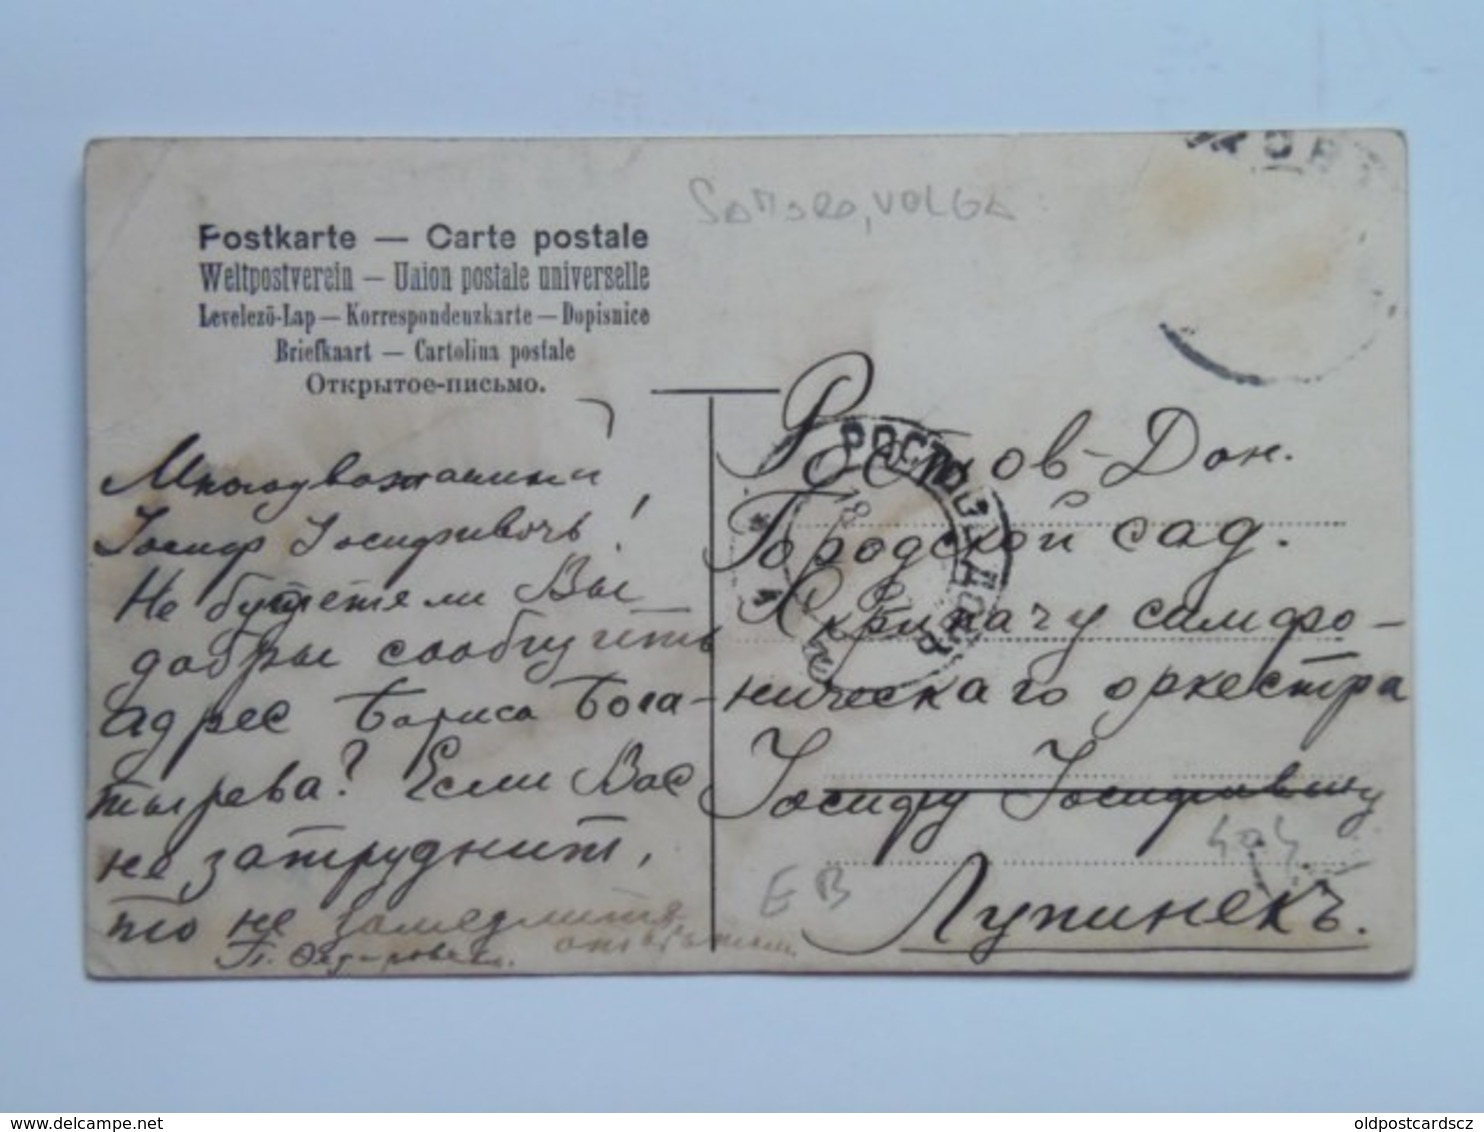 Postkarte — Carte postale
Weltpostverein — Union postale universelle
Levelező-Lap — Korrespondenzkarte — Dopisnice
Briefkaart — Cartolina postale
Открытое-письмо.
Samara, VOLGA
Многоуважаемый
Іосиф Іосифовичъ!
Не будете ли Вы
добры сообщить
адрес Бориса Бога-
тырева? Если Вас
не затруднит,
то не замедлите
ответом.
Ростов-Дон.
Городской сад.
Скрипачу симфо-
ническаго оркестра
Іосифу Іосифовичу
Лупинекъ.
РОСТОВЪ ДОНЪ
18
EB
delcampe.net
oldpostcardscz